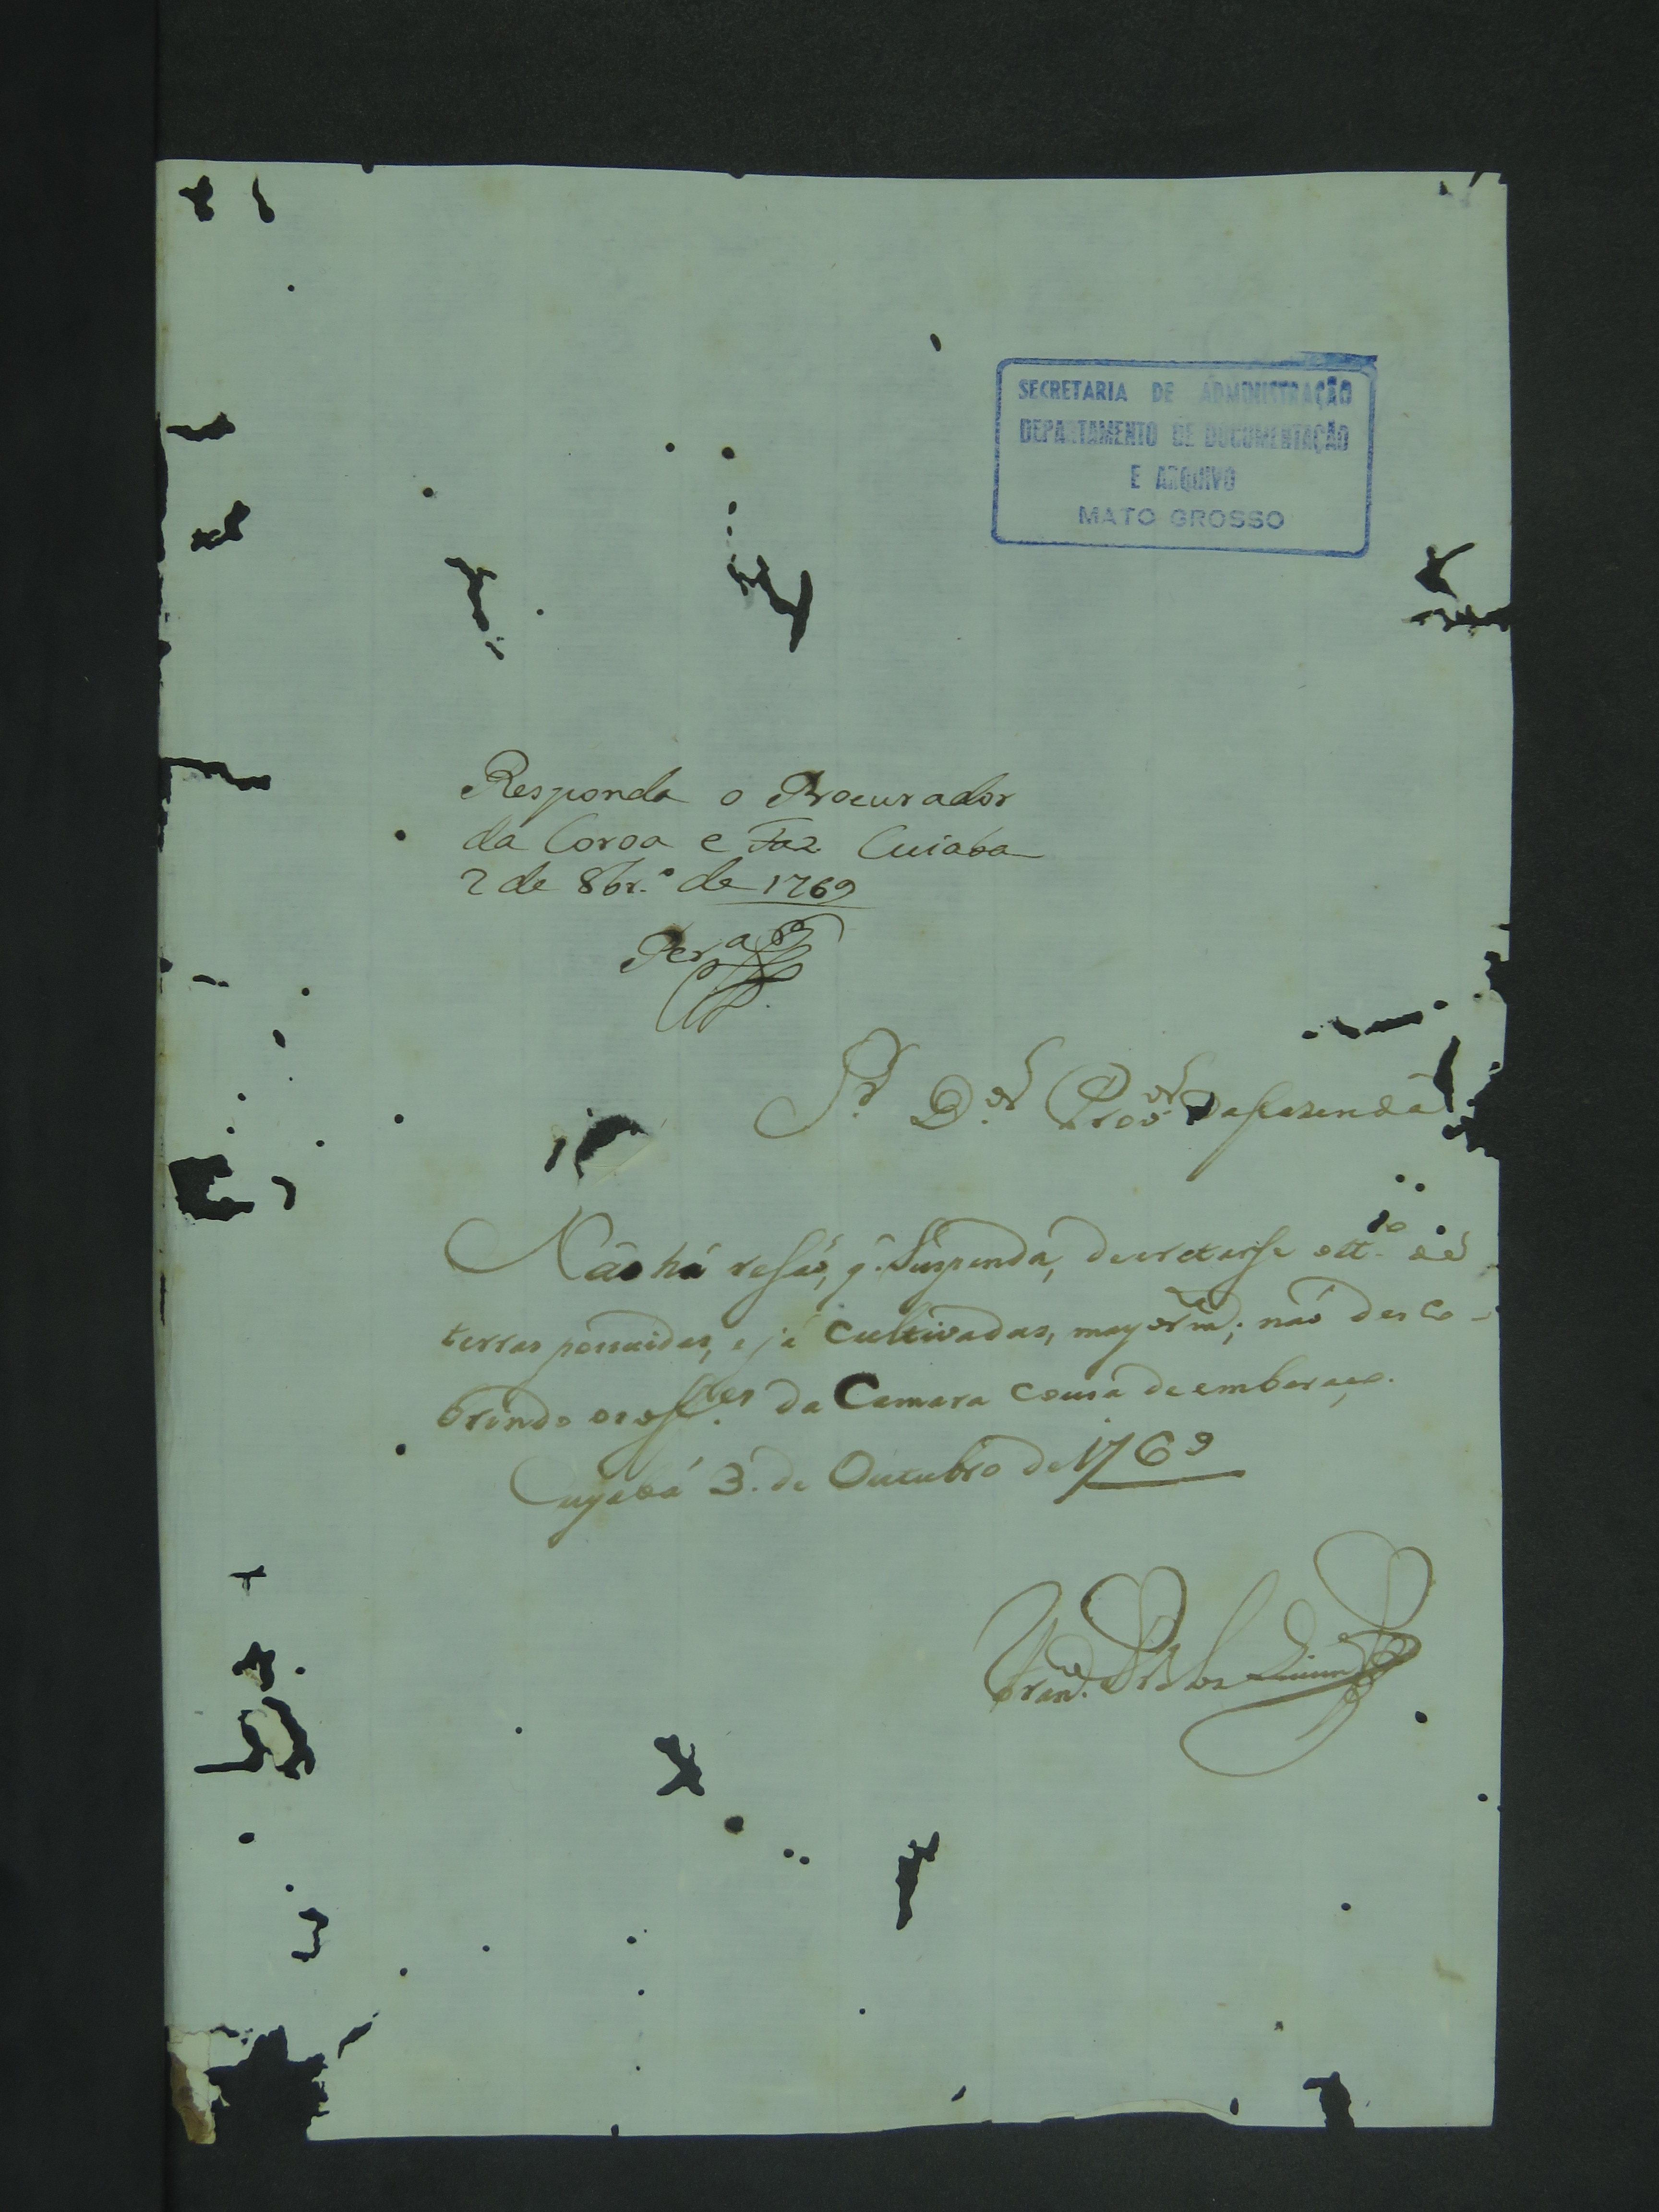 SECRETARIA DE ADMINISTRAÇÃO
DEPARTAMENTO DE DOCUMENTAÇÃO
E ARQUIVO
MATO GROSSO
Responda o Procurador
da Coroa e Faz Cuiaba
2 de 8br.º de 1769
Per.ª
S.r D.or Pro.or Dafasenda
Não há resaõ, q. Suspenda, decretarse
terras possuidas, e já Cultivadas, mayorm.te não desco-
brindo os off.es da Camara Cousa de embaraço.
Cuyabá 3. de Outubro de 1769
Fran.co